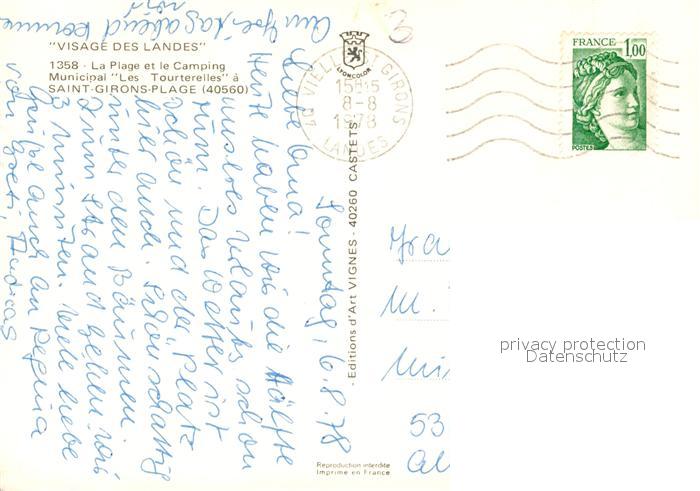 "VISAGE DES LANDES"
1358 - La Plage et le Camping
Municipal "Les Tourterelles" à
SAINT-GIRONS-PLAGE (40560)
LYONCOLOR
40 VIELLE ST GIRONS
15H15
8-8
1978
LANDES
FRANCE
1,00
POSTES
- Editions d'Art VIGNES - 40260 CASTETS
Sonntag, 6.8.78
Liebe Oma!
Heute haben wir die Hälfte
unseres Urlaubs schon
rum. Das Wetter ist
schön und der Platz
hier auch. Schön schattig
unter den Bäumen.
Zum Strand gehen wir
3 Minuten. Viele liebe
Grüße auch an Regina
von
Am
kommen
wir
Fra
M.
53
privacy protection
Datenschutz
Reproduction interdite
Imprimé en France